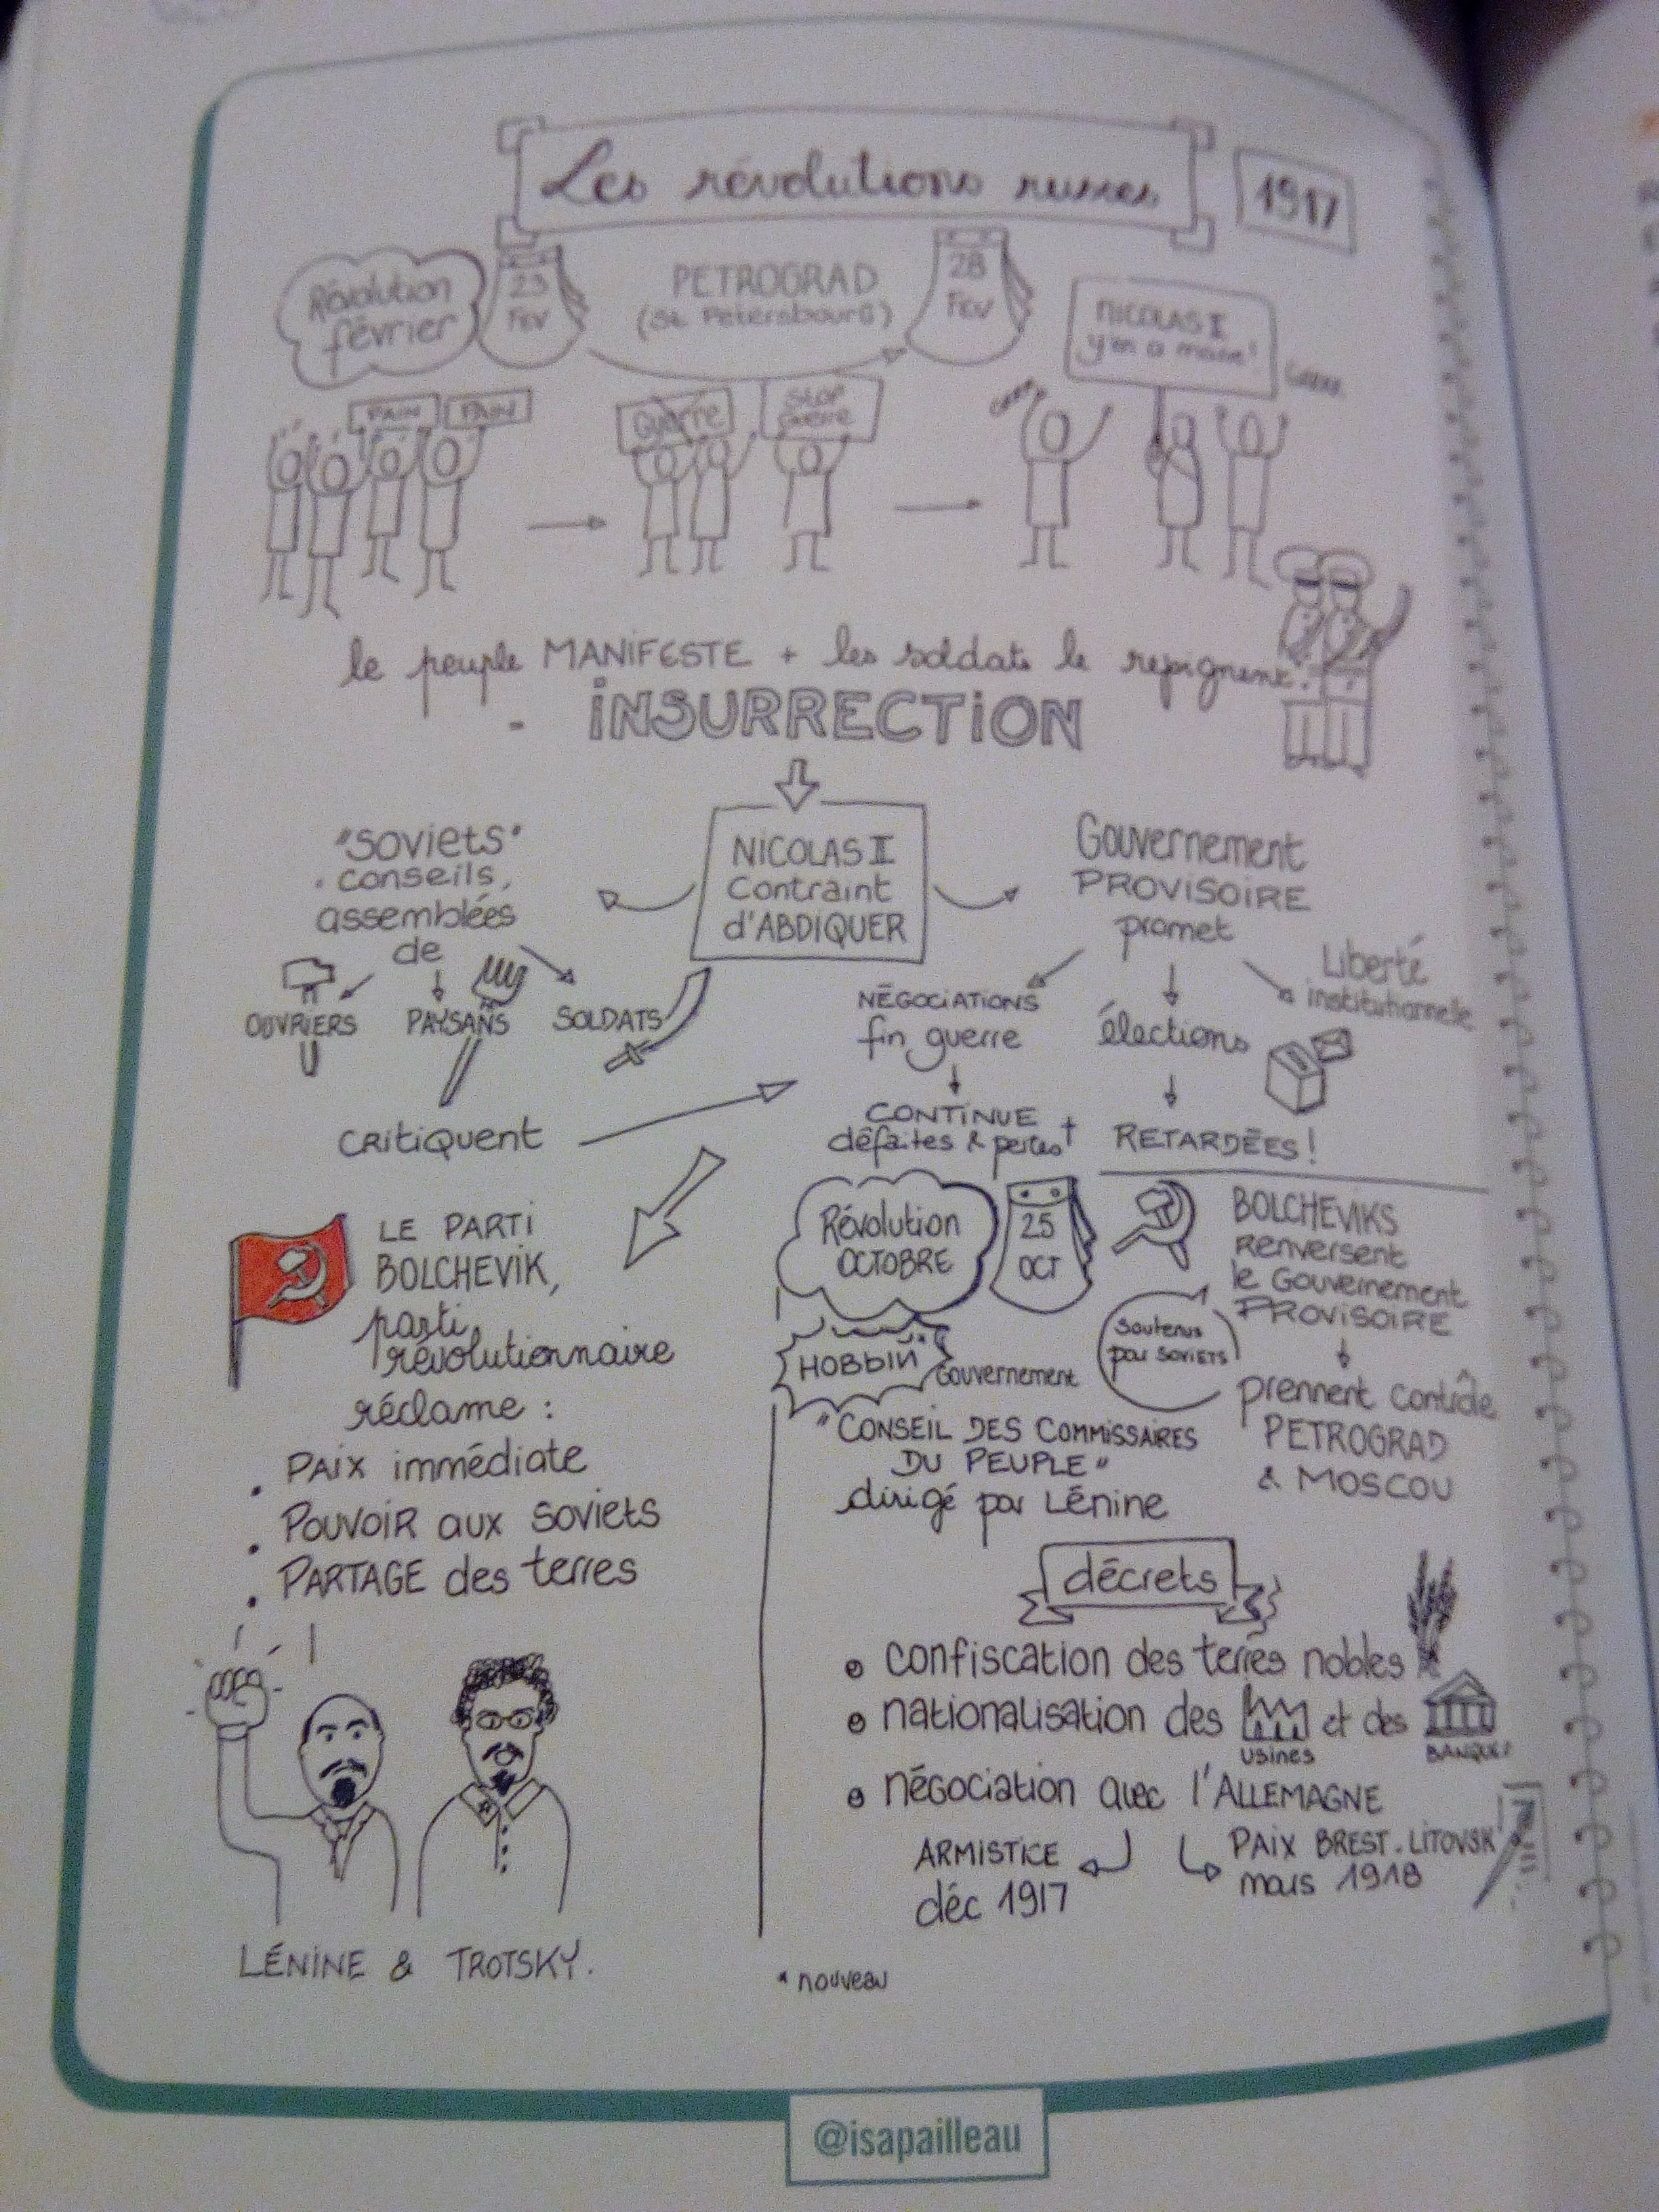 Les révolutions russes
1917
Révolution
février
23
FEV
PETROGRAD
(St Petersbourg)
28
FEV
NICOLAS II
y'en a marre!
PAIN
PAIN
Guerre
STOP
Guerre
le peuple MANIFESTE + les soldats le rejoignent.
INSURRECTION
"SOVIETS"
conseils,
assemblées
de
OUVRIERS
PAYSANS
SOLDATS
NICOLAS II
Contraint
d'ABDIQUER
Gouvernement
PROVISOIRE
promet
NÉGOCIATIONS
fin guerre
élections
Liberté
institutionnelle
CONTINUE
défaites & pertes
RETARDÉES!
CRITIQUENT
LE PARTI
BOLCHEVIK,
parti
révolutionnaire
réclame :
. PAIX immédiate
. POUVOIR aux SOVIETS
. PARTAGE des terres
LÉNINE & TROTSKY.
Révolution
OCTOBRE
25
OCT
BOLCHEVIKS
Renversent
le Gouvernement
PROVISOIRE
soutenus
par SOVIETS
prennent contrôle
PETROGRAD
& MOSCOU
Gouvernement
"CONSEIL DES COMMISSAIRES
DU PEUPLE"
dirigé par Lénine
décrets
confiscation des terres nobles
nationalisation des usines et des BANQUES
négociation avec l'ALLEMAGNE
ARMISTICE
déc 1917
PAIX BREST.LITOVSK
mars 1918
* nouveau
@isapailleau